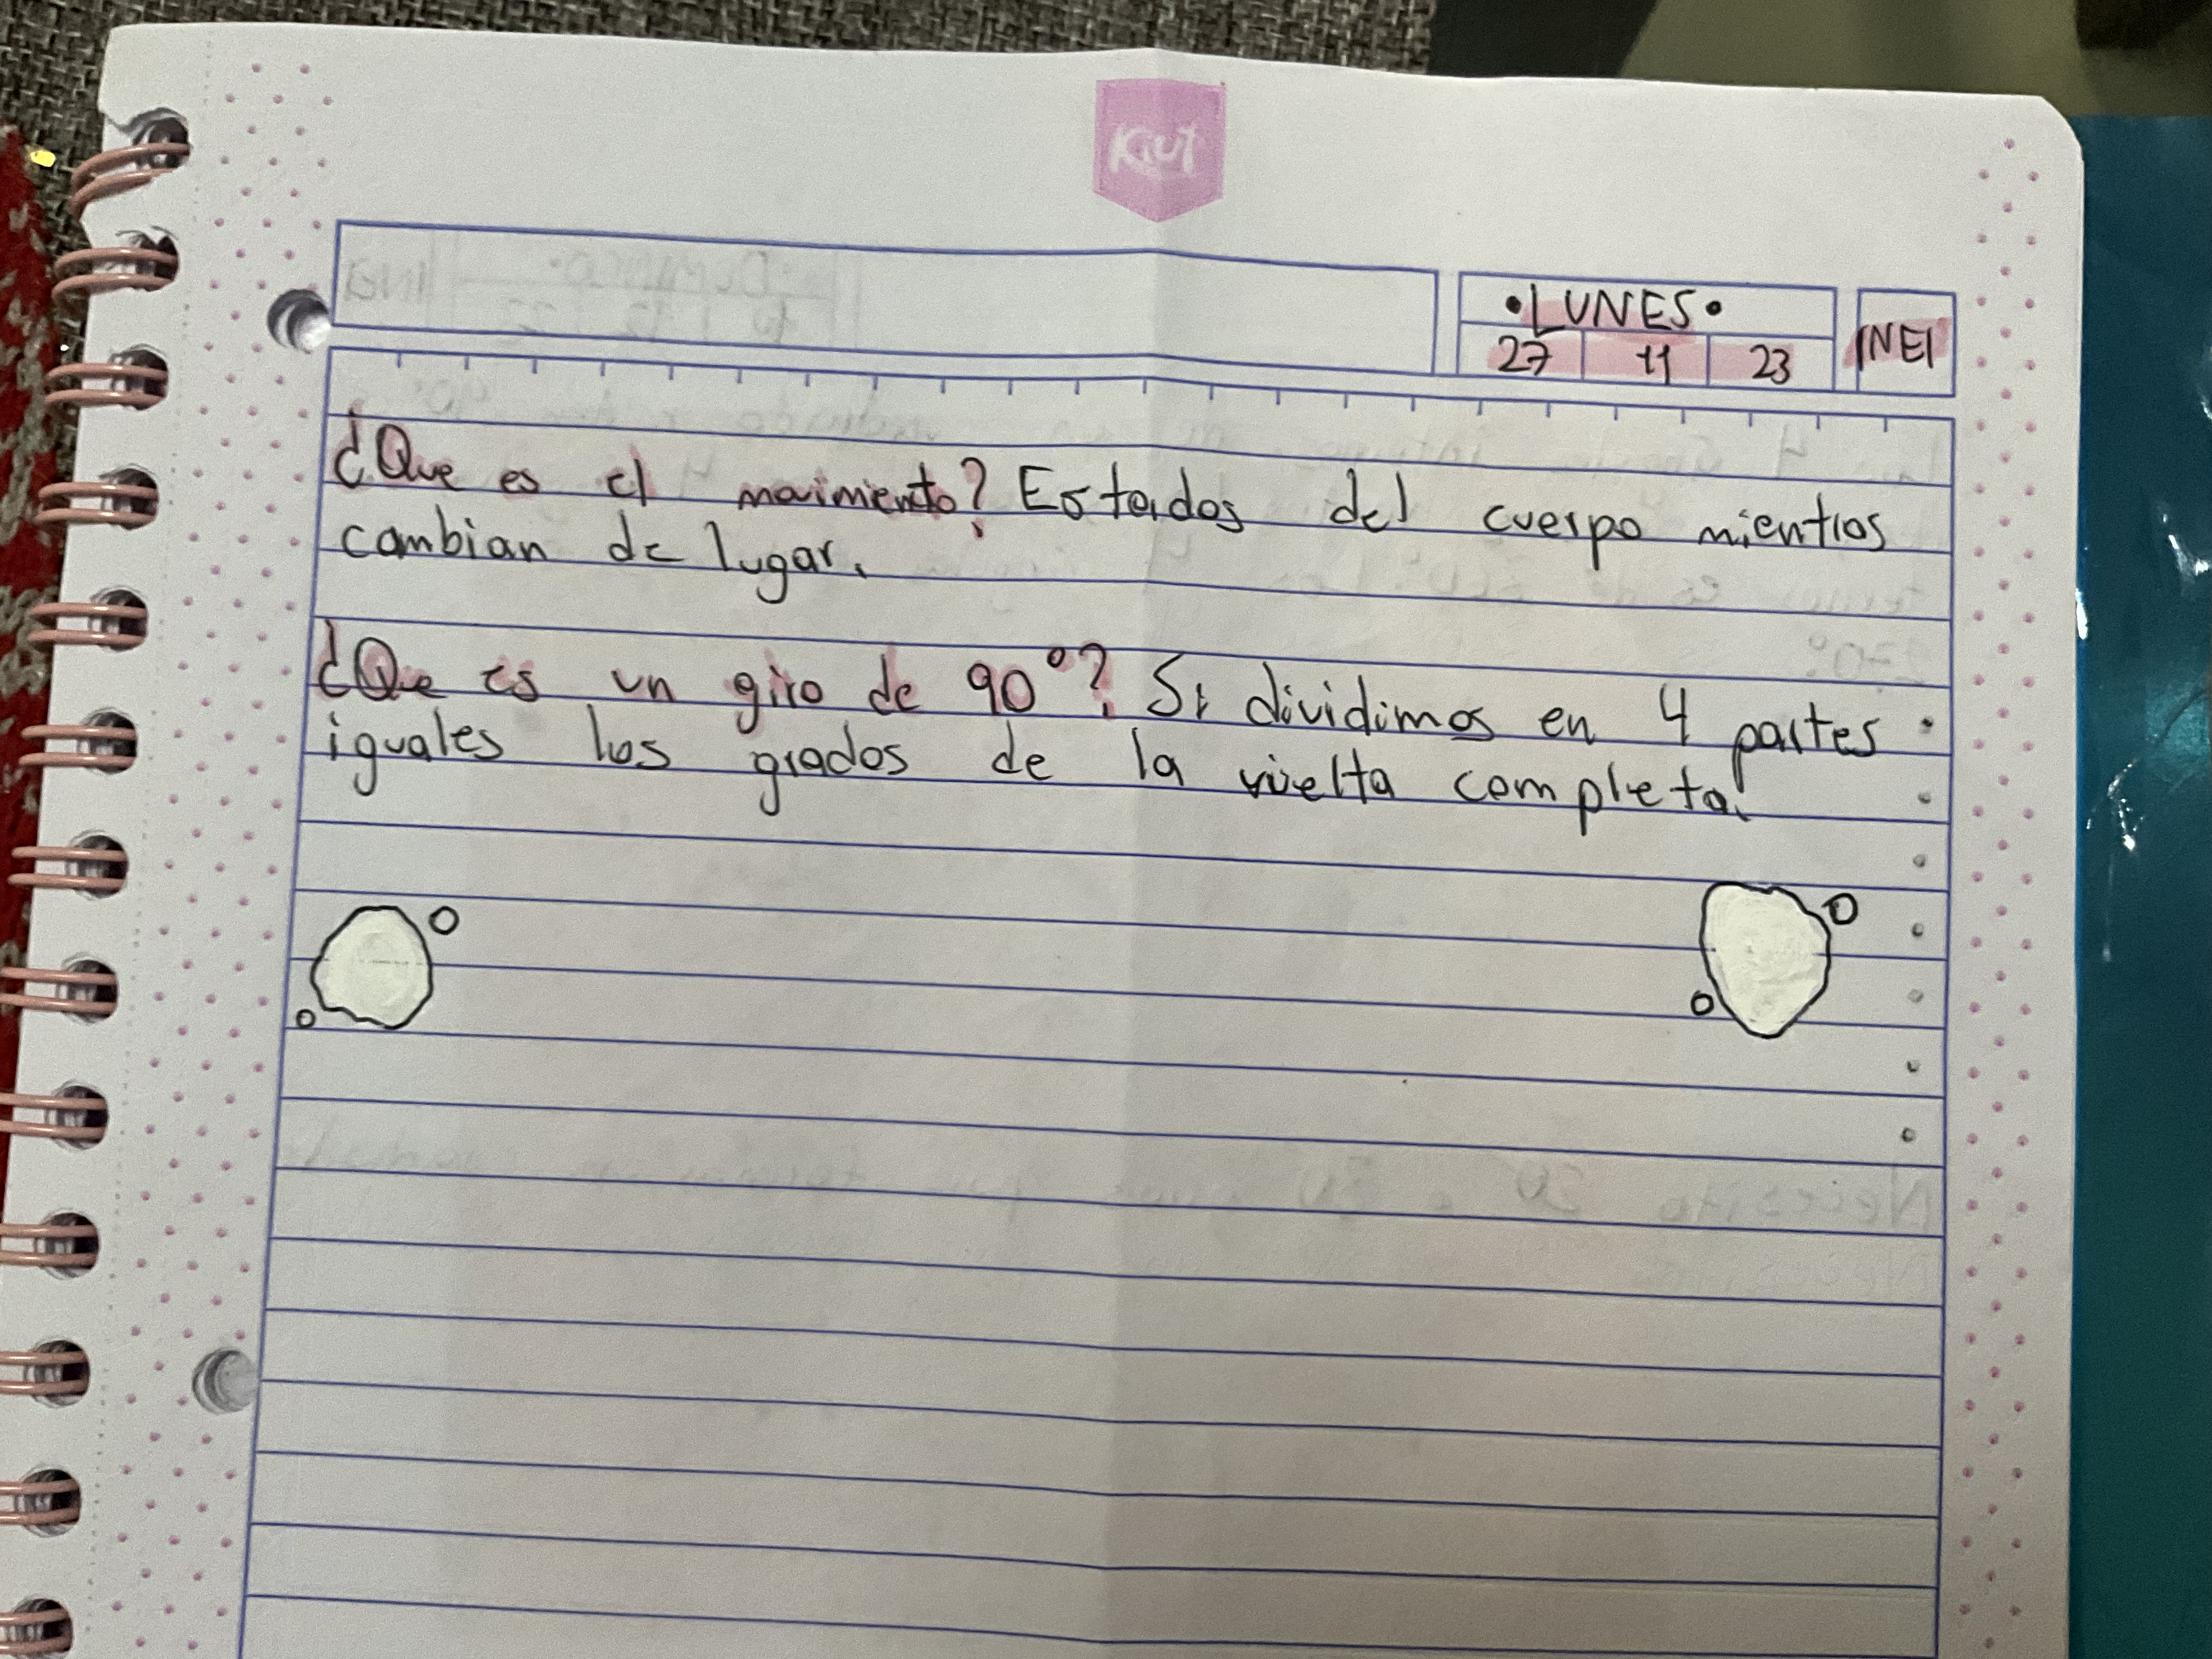 Kiut
•LUNES•
27 11 23
INEI
¿Que es el movimiento? Estados del cuerpo mientras
cambian de lugar.
¿Que es un giro de 90°? Si dividimos en 4 partes
iguales los grados de la vuelta completa.